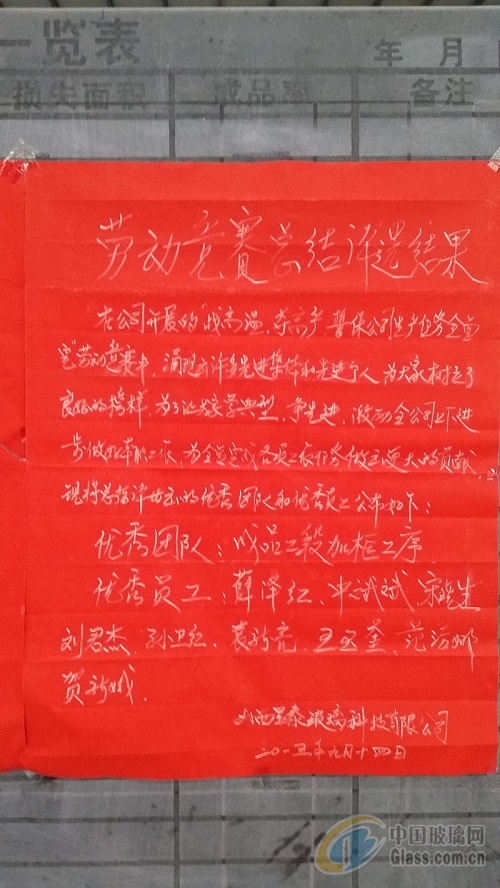 一览表 年 月
损失面积 成品率 备注
劳动竞赛总结评选结果
在公司开展的“战高温、夺高产 暨保公司生产任务全面
完”劳动竞赛中，涌现出许多先进集体和先进个人 为大家树立了
良好的榜样，为了让大家学典型、争先进，激励全公司上下进
步做好本职工作，为全面完成各项工作任务做出更大的贡献
现将总结评出的优秀团队和优秀员工公布如下：
优秀团队：成品工段加框工序
优秀员工：薛泽红、斌斌、宋生
刘君杰、孙卫红、袁新亮、王、范活娜
贺新娥.
玻璃科技有限公司
二〇一五年九月十四日
中国玻璃网
Glass.com.cn